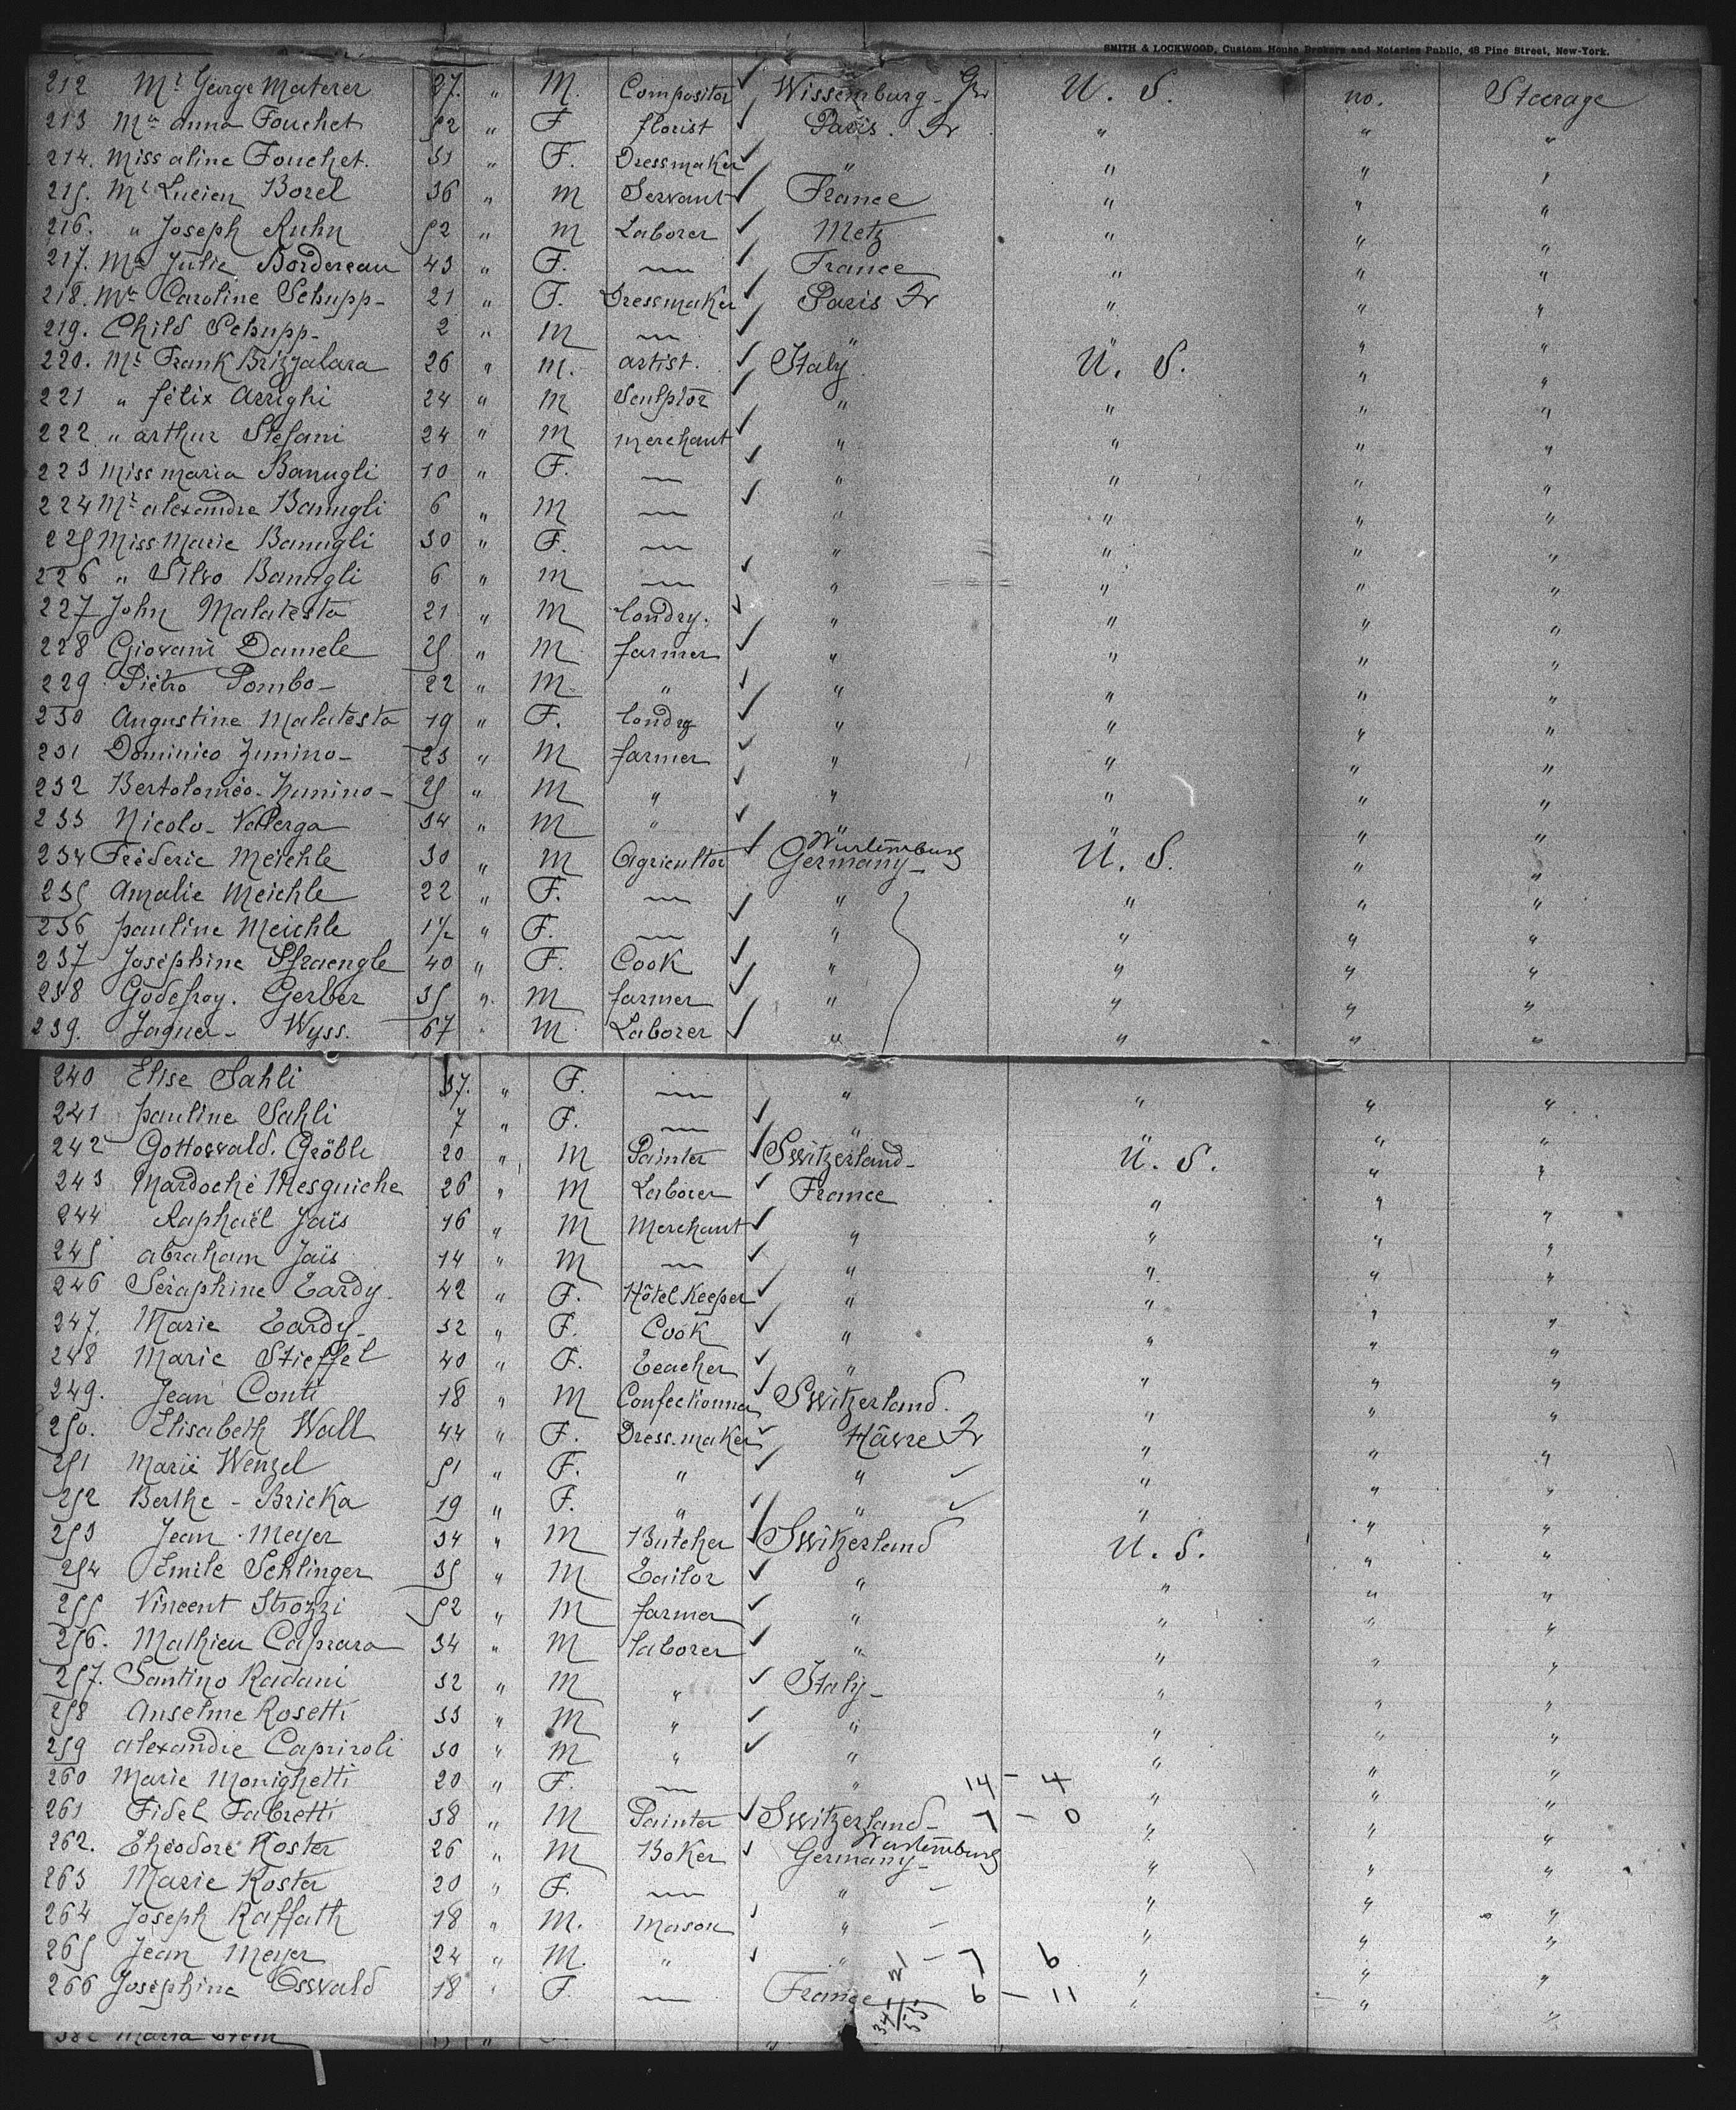 SMITH & LOCKWOOD, Custom House Brokers and Notaries Public, 48 Pine Street, New-York.
212 Mr George Materer 27. " M. Compositor Wissemburg - Gr U. S. no. Steerage
213 Mme anna Fouchet 52 " F florist Paris. Fr " " "
214. Miss aline Fouchet. 31 " F. Dressmaker " " " "
215. Mr Lucien Borel 36 " M Servant France " " "
216. " Joseph Kuhn 52 " M Laborer Metz " " "
217. Mme Julie Bordereau 43 " F. — France " " "
218. Mme Caroline Schupp - 21 " F. Dressmaker Paris Fr " " "
219. Child Schupp - 2 " M — " " "
220. Mr Frank Brizzalara 26 " M. artist. Italy U. S. " "
221 " félix Arrighi 24 " M Sculptor " " " "
222 " arthur Stefani 24 " M merchant " " " "
223 Miss maria Banugli 10 " F. — " " " "
224 Mr alexandre Banugli 6 " M — " " " "
225 Miss Marie Banugli 30 " F. — " " " "
226 " Silvo Banugli 6 " M — " " " "
227 John Malatesta 21 " M londry. " " " "
228 Giovani Daniele 25 " M farmer " " " "
229 Piétro Pombo - 22 " M " " " " "
230 Augustine Malatesta 19 " F. londry " " " "
231 Dominico Zunino - 23 " M farmer " " " "
232 Bertoloméo - Zunino - 25 " M " " " " "
233 Nicolo - Vallerga 34 " M " " " "
234 Fréderic Meichle 30 " M Agricultor Würtemburg Germany - U. S. " "
235 Amalie Meichle 22 " F. — " " " "
236 pauline Meichle 1 1/2 " F. — " " " "
237 Joséphine Straengle 40 " F. Cook " " " "
238 Godefroy. Gerber 35 " M farmer " " " "
239. Jaques - Wyss. 67 " M Laborer " " " "
240 Elise Sahli 37. " F. — " " " "
241 pauline Sahli 7 " F. — " " "
242 Gottowald. Gröble 20 " M Painter Switzerland - U. S. " "
243 Mardoché Mesguiche 26 " M Laborer France " " "
244 Raphaël Jaïs 16 " M Merchant " " " "
245 abraham Jaïs 14 " M — " " " "
246 Séraphine Tardy. 42 " F. Hôtel Keeper " " " "
247. Marie Tardy 32 " F. Cook " " " "
248 Marie Stieffel 40 " F. Teacher " " " "
249. Jean Conti 18 " M Confectionner Switzerland. " " "
250. Elisabeth Wall 44 " F. Dress-maker Hâvre Fr " " "
251 Marie Wenzel 51 " F. " " " " "
252 Berthe - Bricka 19 " F. " " " " "
253 Jean Meyer 34 " M Butcher Switzerland U. S. " "
254 Emile Schlinger 35 " M Tailor " " " "
255 Vincent Strozzi 52 " M farmer " " " "
256. Mathieu Caprara 34 " M laborer " " " "
257. Santino Radani 32 " M " Italy - " " "
258 Anselme Rosetti 33 " M " " " " "
259 alexandre Capriroli 30 " M " " " " "
260 Marie Monighetti 20 " F. — " 14 - 4 " " "
261 Fidel Fabretti 38 " M Painter Switzerland - 7 - 0 " " "
262. Théodore Koster 26 " M Baker Wurtemburg Germany - " " "
263 Marie Koster 20 " F. — " " " "
264 Joseph Raffath 18 " M. mason " " " "
265 Jean Meyer 24 " M. " " 21 - 7 6 " " "
266 Joséphine Osswald 18 " F. — France 6 - 11 " " "
34/55
382 Maria Stein